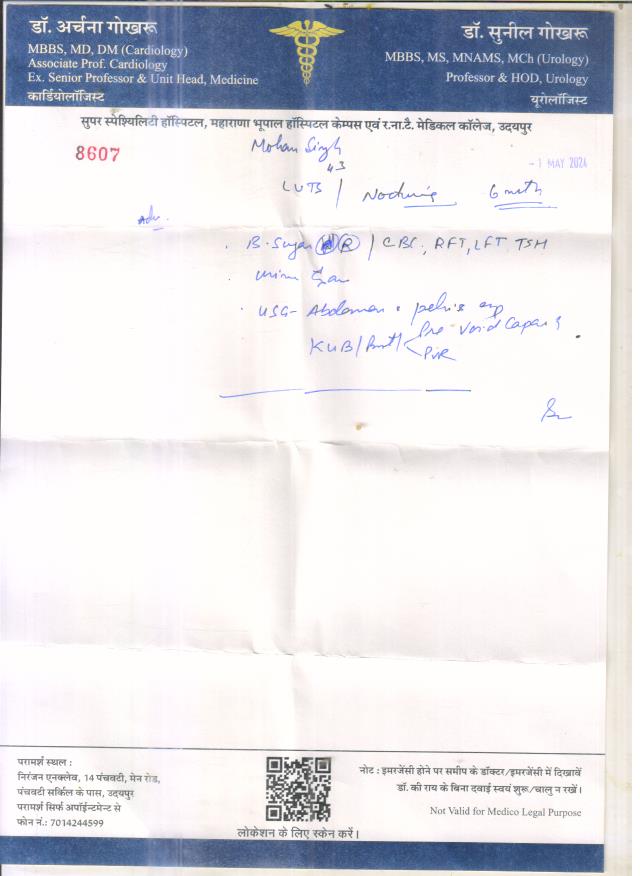 डॉ. अर्चना गोखरू
MBBS, MD, DM (Cardiology)
Associate Prof. Cardiology
Ex. Senior Professor & Unit Head, Medicine
कार्डियोलॉजिस्ट
डॉ. सुनील गोखरू
MBBS, MS, MNAMS, MCh (Urology)
Professor & HOD, Urology
यूरोलॉजिस्ट
सुपर स्पेश्यिलिटी हॉस्पिटल, महाराणा भूपाल हॉस्पिटल केम्पस एवं र.ना.टै. मेडिकल कॉलेज, उदयपुर
8607
Mohan Singh
43
- 1 MAY 2024
LUTS / Nocturia 6 mth
Adv.
B. Sugar (R) / CBC, RFT, LFT, TSH
Urine
USG- Abdomen pelvis
KUB / Pre Void Capacity
PVR
परामर्श स्थल :
निरंजन एनक्लेव, 14 पंचवटी, मेन रोड,
पंचवटी सर्किल के पास, उदयपुर
परामर्श सिर्फ अपॉईन्टमेन्ट से
फोन नं.: 7014244599
लोकेशन के लिए स्केन करें।
नोट : इमरजेंसी होने पर समीप के डॉक्टर/इमरजेंसी में दिखावें
डॉ. की राय के बिना दवाई स्वयं शुरू/चालु न रखें।
Not Valid for Medico Legal Purpose